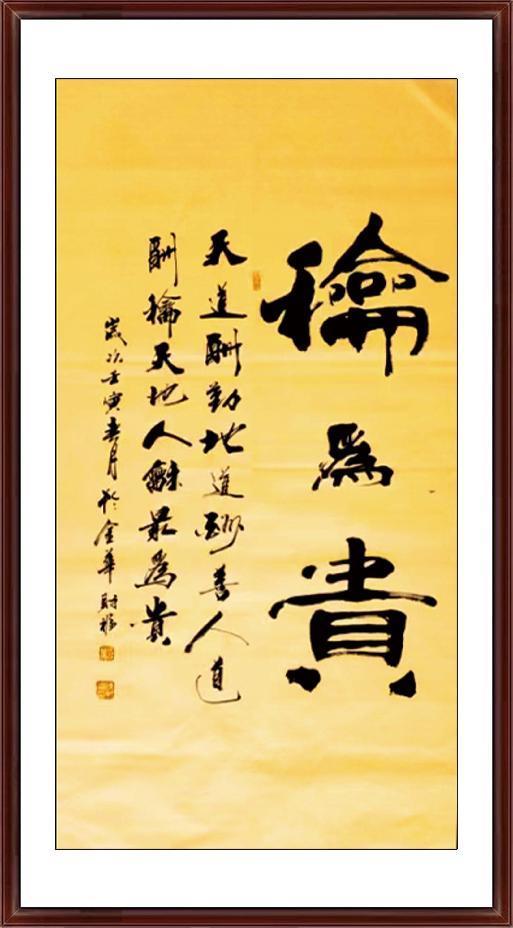 龢為貴
天道酬勤地道酬善人道
酬龢天地人龢最為貴
歲次壬寅春月於金華財